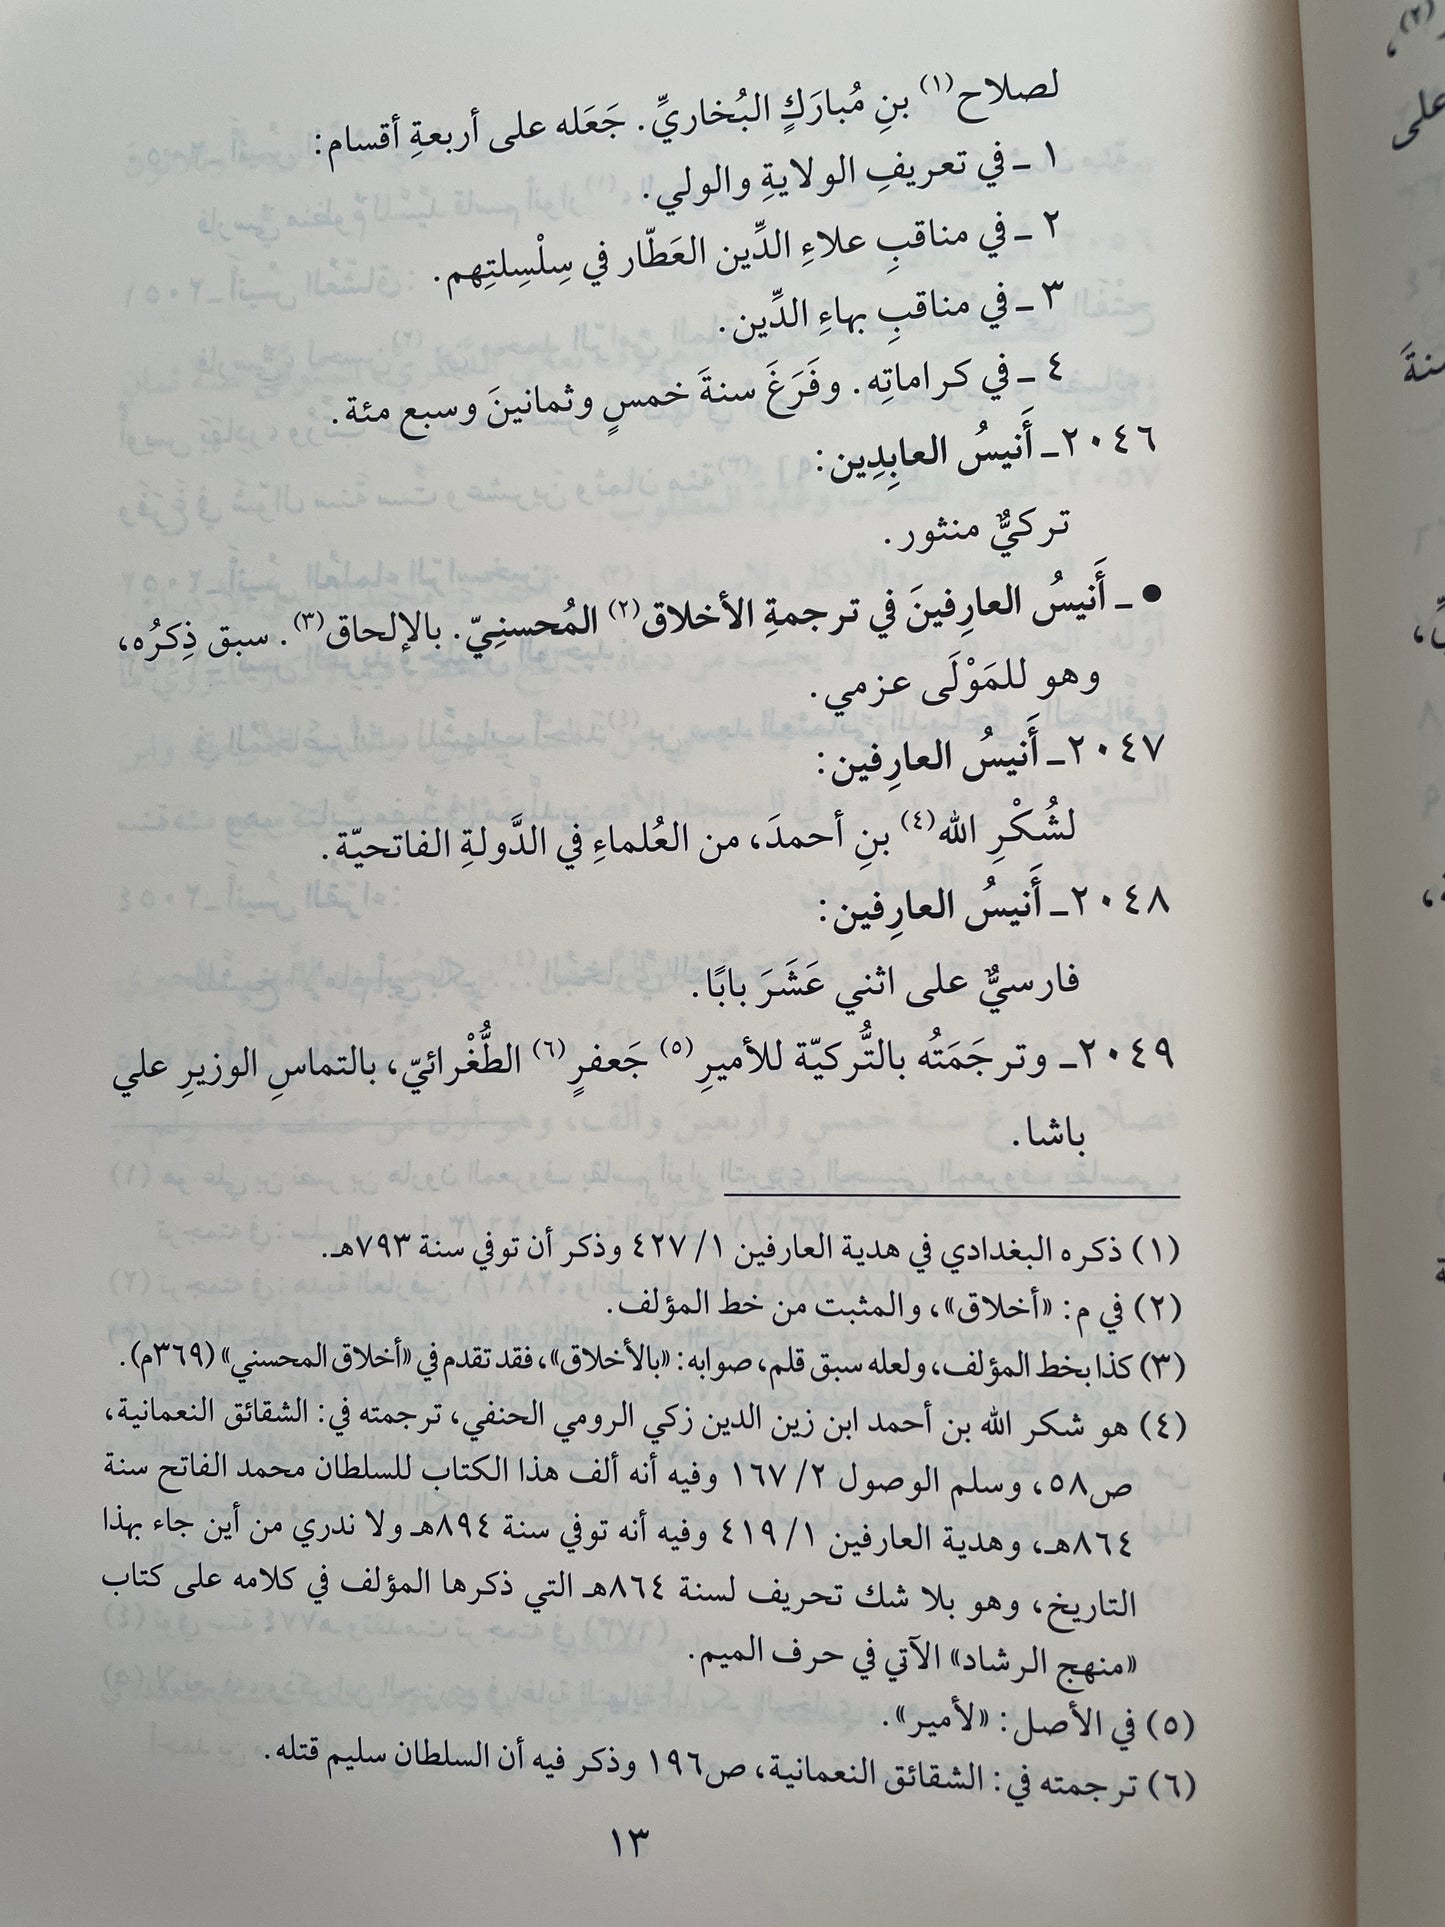 لصلاح(١) بنِ مُبارَكٍ البُخاريِّ. جَعَله على أربعةِ أقسام:
١ ـ في تعريفِ الولايةِ والولي.
٢ ـ في مناقبِ علاءِ الدِّين العَطّار في سِلْسِلتِهم.
٣ ـ في مناقبِ بهاءِ الدِّين.
٤ ـ في كراماتِه. وفَرَغَ سنةَ خمسٍ وثمانينَ وسبع مئة.
٢٠٤٦ـ أَنيسُ العابِدِين:
تركيٌّ منثور.
● ـ أَنيسُ العارِفينَ في ترجمةِ الأخلاق(٢) المُحسنِيّ. بالإلحاق(٣). سبق ذِكرُه،
وهو للمَوْلَى عزمي.
٢٠٤٧ـ أَنيسُ العارِفين:
لشُكْرِ الله(٤) بنِ أحمدَ، من العُلماءِ في الدَّولةِ الفاتحيّة.
٢٠٤٨ـ أَنيسُ العارِفين:
فارسيٌّ على اثني عَشَرَ بابًا.
٢٠٤٩ـ وترجَمَتُه بالتُّركيّة للأميرِ(٥) جَعفرٍ(٦) الطُّغْرائيّ، بالتماسِ الوزيرِ علي
باشا.
(١) ذكره البغدادي في هدية العارفين ١/ ٤٢٧ وذكر أن توفي سنة ٧٩٣هـ.
(٢) في م: «أخلاق»، والمثبت من خط المؤلف.
(٣) كذا بخط المؤلف، ولعله سبق قلم، صوابه: «بالأخلاق»، فقد تقدم في «أخلاق المحسني» (٣٦٩م).
(٤) هو شكر الله بن أحمد ابن زين الدين زكي الرومي الحنفي، ترجمته في: الشقائق النعمانية،
ص٥٨، وسلم الوصول ٢/ ١٦٧ وفيه أنه ألف هذا الكتاب للسلطان محمد الفاتح سنة
٨٦٤هـ، وهدية العارفين ١/ ٤١٩ وفيه أنه توفي سنة ٨٩٤هـ ولا ندري من أين جاء بهذا
التاريخ، وهو بلا شك تحريف لسنة ٨٦٤هـ التي ذكرها المؤلف في كلامه على كتاب
«منهج الرشاد» الآتي في حرف الميم.
(٥) في الأصل: «لأمير».
(٦) ترجمته في: الشقائق النعمانية، ص١٩٦ وذكر فيه أن السلطان سليم قتله.
١٣
على